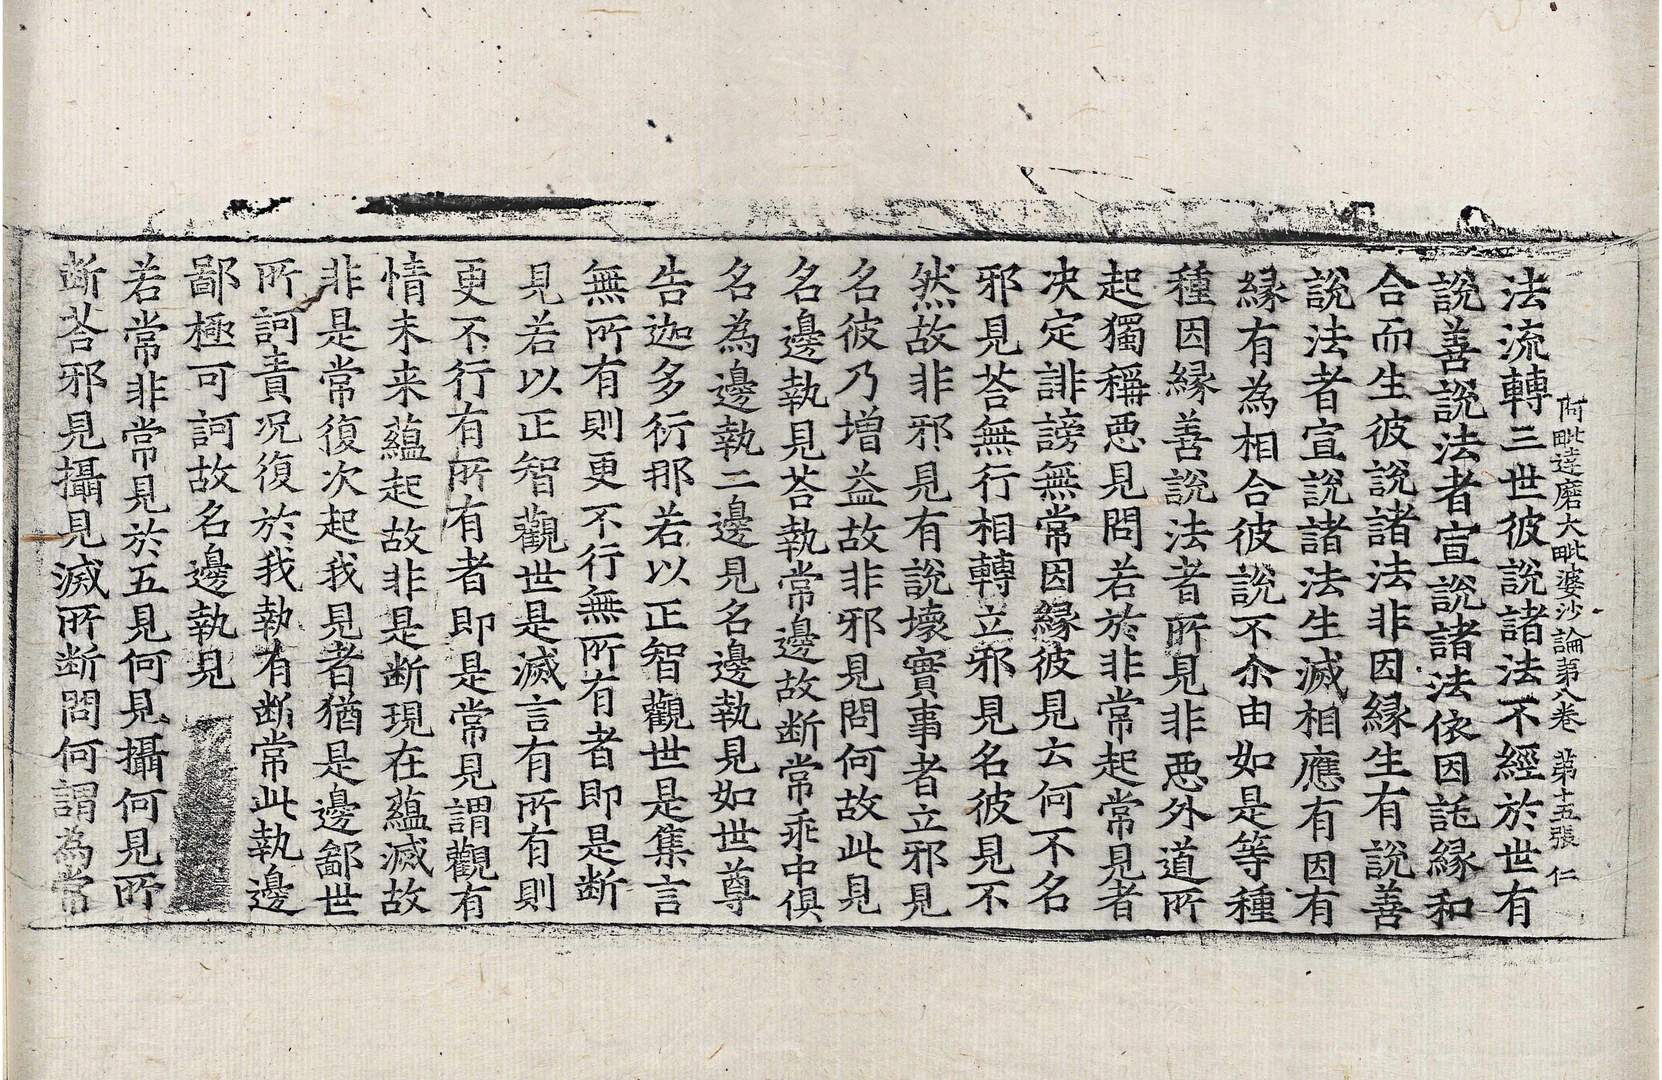 阿毗達磨大毗婆沙論第八卷 第十五張 仁
法流轉三世彼說諸法不經於世有
說善說法者宣說諸法依因託緣和
合而生彼說諸法非因緣生有說善
說法者宣說諸法生滅相應有因有
緣有為相合彼說不尒由如是等種
種因緣善說法者所見非惡外道所
起獨稱惡見問若於非常起常見者
决定誹謗無常因緣彼見云何不名
邪見荅無行相轉立邪見名彼見不
然故非邪見有說壞實事者立邪見
名彼乃增益故非邪見問何故此見
名邊執見荅執常邊故断常乖中俱
名為邊執二邊見名邊執見如世尊
告迦多衍那若以正智觀世是集言
無所有則更不行無所有者即是断
見若以正智觀世是滅言有所有則
更不行有所有者即是常見謂觀有
情未来蘊起故非是断現在蘊滅故
非是常復次起我見者猶是邊鄙世
所訶責况復於我執有断常此執邊
鄙極可訶故名邊執見
若常非常見於五見何見攝何見所
断荅邪見攝見滅所断問何謂為常